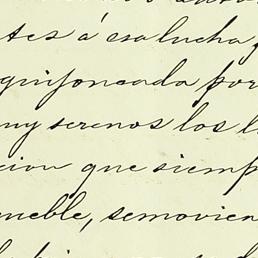 tes á esa lucha,
quijoneada por
uy serenos los l
cion que siemp
mueble, semovien